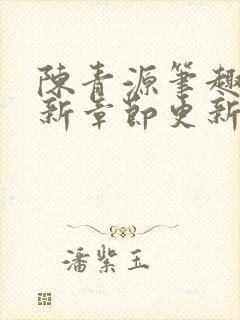 陳青源筆趣
新章節更新
潘紫玉